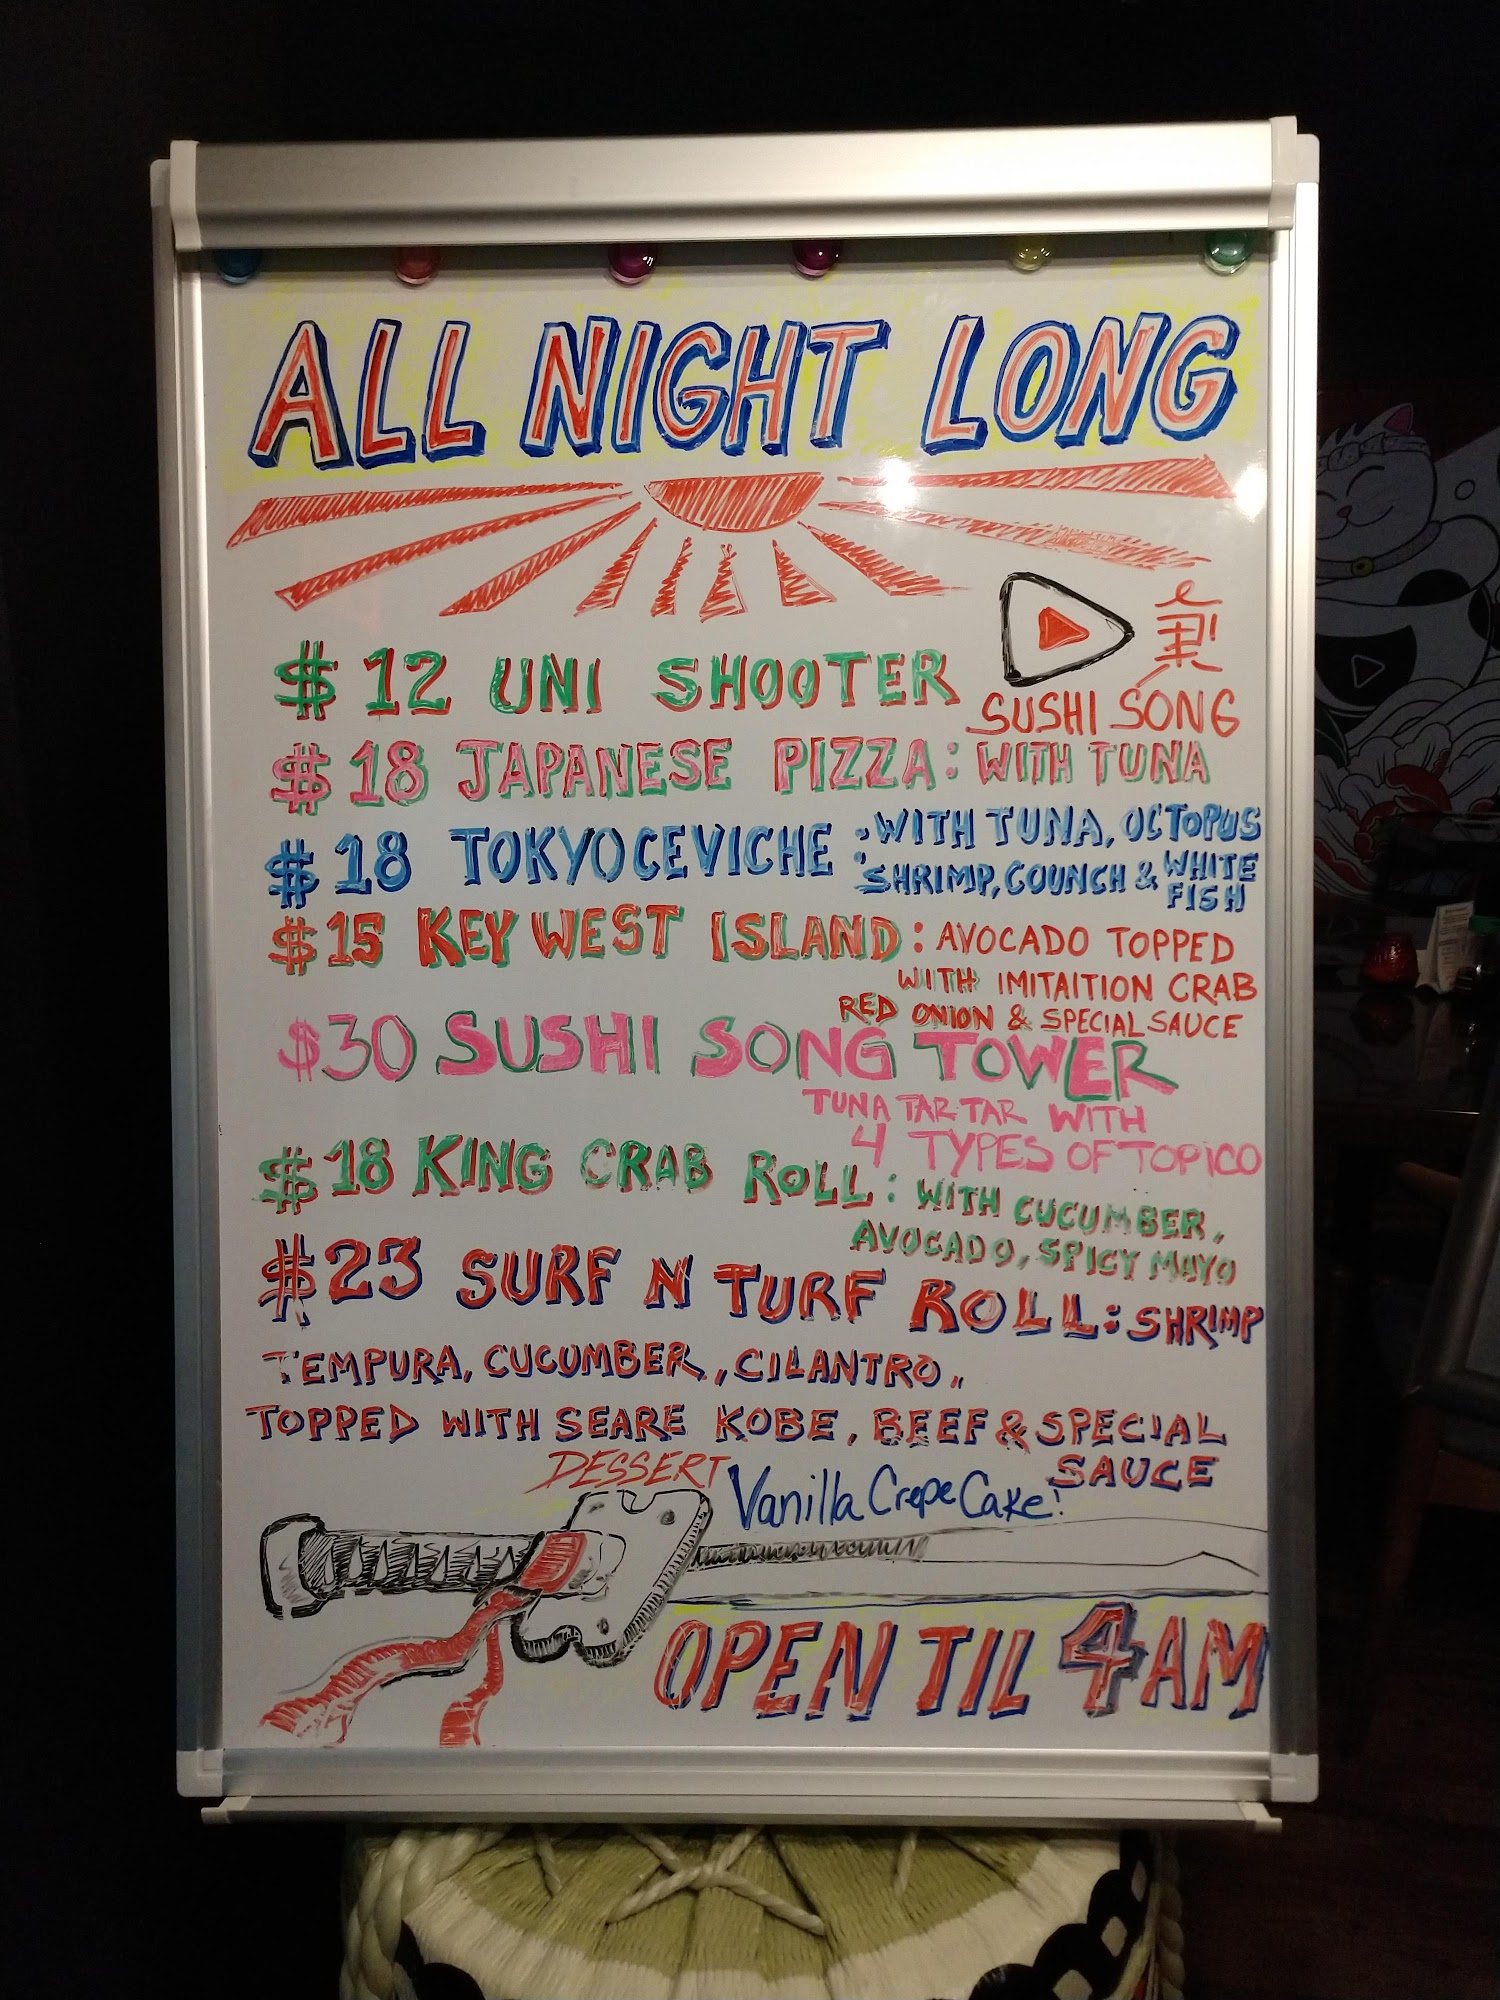 ALL NIGHT LONG
$12 UNI SHOOTER
SUSHI SONG
$18 JAPANESE PIZZA: WITH TUNA
$18 TOKYO CEVICHE: WITH TUNA, OCTOPUS
SHRIMP, COUNCH & WHITE
FISH
$15 KEY WEST ISLAND: AVOCADO TOPPED
WITH IMITAITION CRAB
RED ONION & SPECIAL SAUCE
$30 SUSHI SONG TOWER
TUNA TAR TAR WITH
4 TYPES OF TOPICO
$18 KING CRAB ROLL: WITH CUCUMBER,
AVOCADO, SPICY MAYO
$23 SURF N TURF ROLL: SHRIMP
TEMPURA, CUCUMBER, CILANTRO,
TOPPED WITH SEARE KOBE, BEEF & SPECIAL
SAUCE
DESSERT Vanilla Crepe Cake!
OPEN TIL 4AM